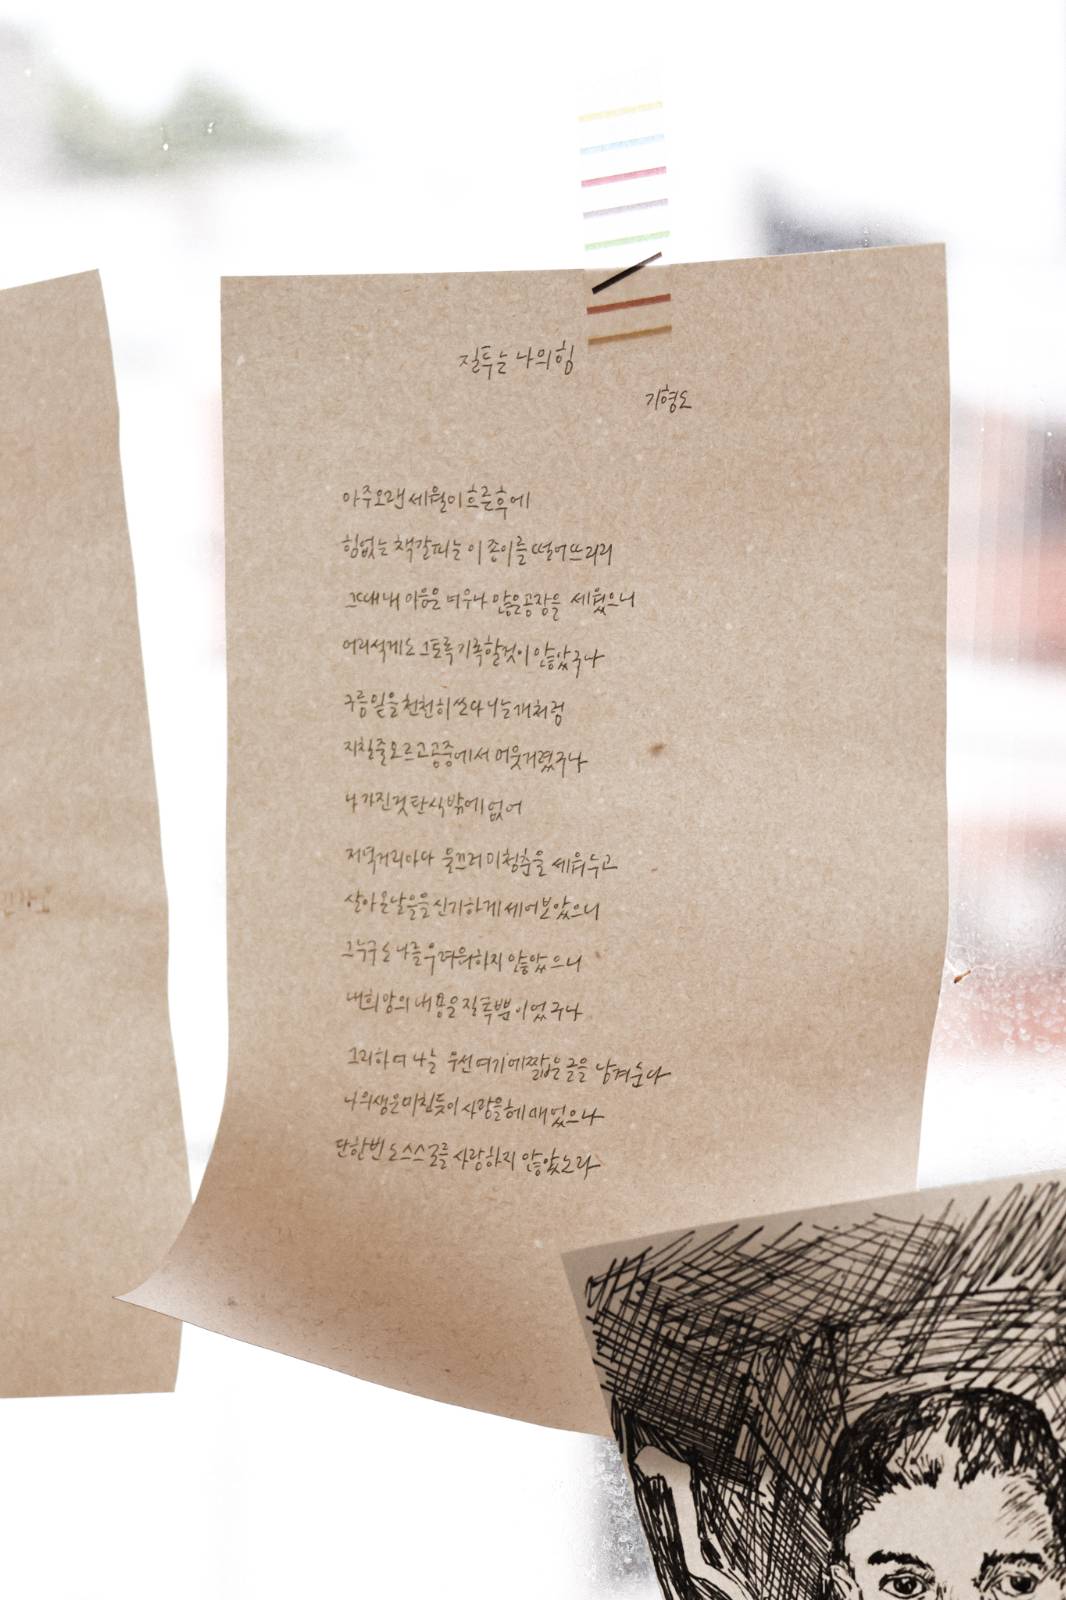 질투는 나의 힘
기형도
아주 오랜 세월이 흐른 후에
힘없는 책갈피는 이 종이를 떨어뜨리리
그때 내 마음은 너무나 많은 공장을 세웠으니
어리석게도 그토록 기록할 것이 많았구나
구름 밑을 천천히 쏘다니는 개처럼
지칠 줄 모르고 공중에서 머뭇거렸구나
나 가진 것 탄식밖에 없어
저녁 거리마다 물끄러미 청춘을 세워두고
살아온 날들을 신기하게 세어보았으니
그 누구도 나를 두려워하지 않았으니
내 희망의 내용은 질투뿐이었구나
그리하여 나는 우선 여기에 짧은 글을 남겨둔다
나의 생은 미친듯이 사랑을 헤매었으나
단 한번도 스스로를 사랑하지 않았노라